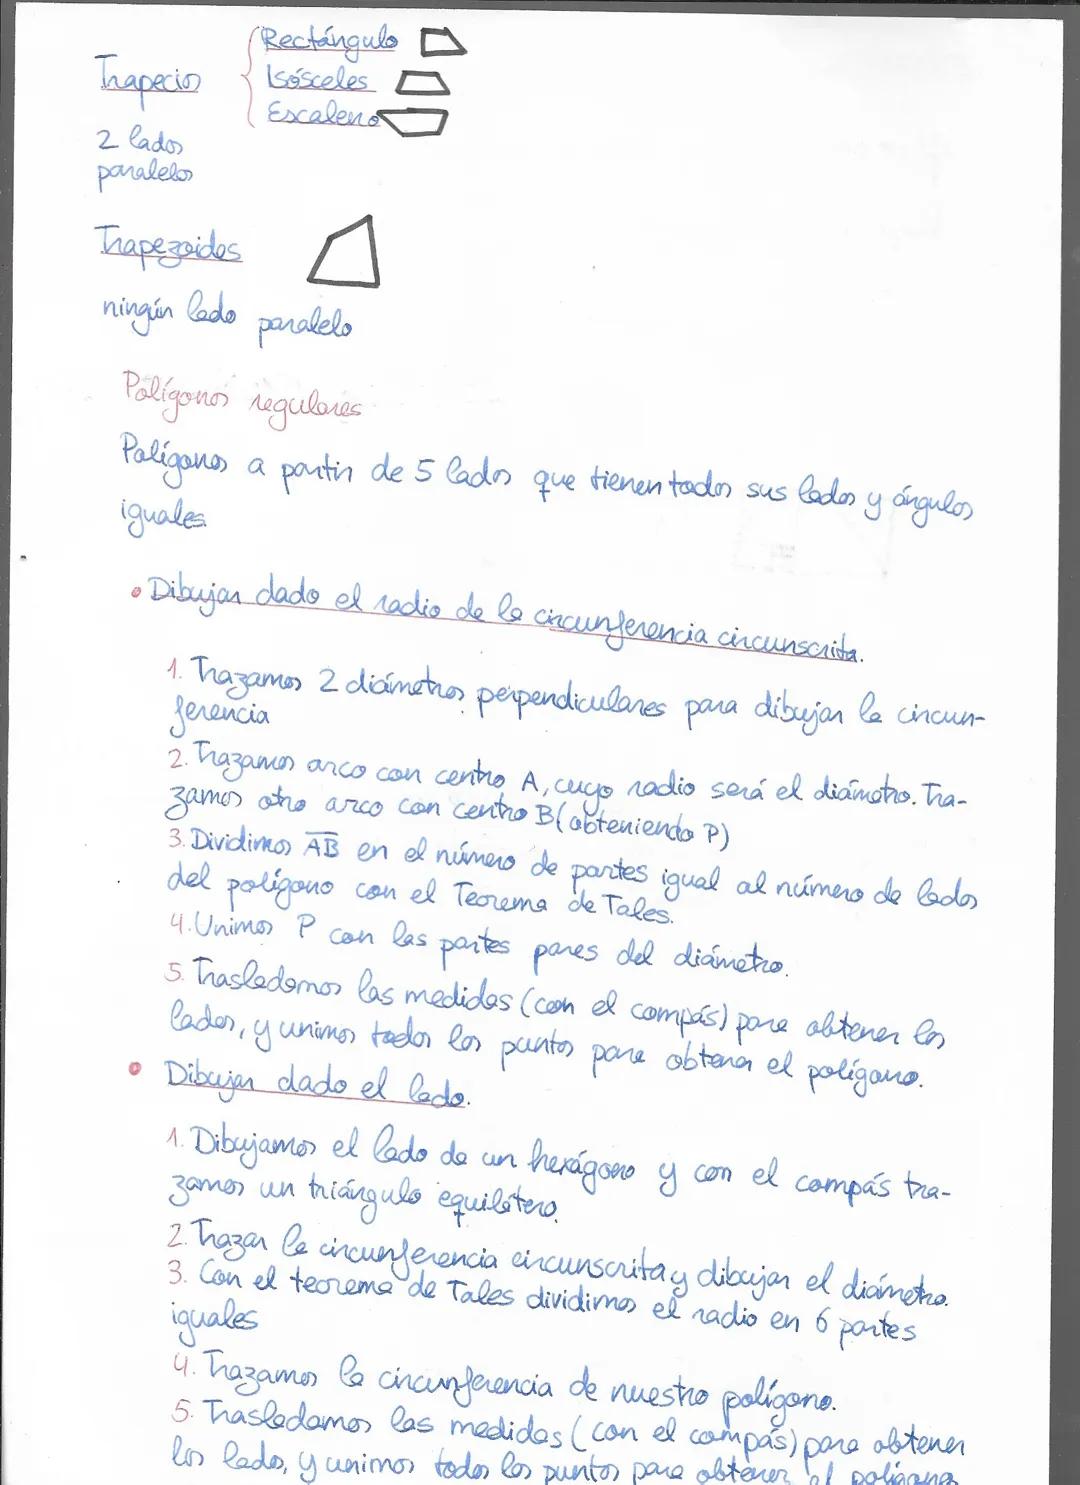 Trapecios
Rectángulo
Isósceles
Escaleno
2 lados
paralelos
Trapezoides
ningún lado paralelo
Polígonos regulares
Polígonos a partir de 5 lados que tienen todos sus lados y ángulos
iguales.
• Dibujar dado el radio de la circunferencia circunscrita.
1. Trazamos 2 diámetros perpendiculares para dibujar la circun-
ferencia
2. Trazamos arco con centro A, cuyo radio será el diámetro. Tra-
zamos otro arco con centro B (obteniendo P)
3. Dividimos AB en el número de partes igual al número de lados
del polígono con el Teorema de Tales.
4. Unimos P con las partes pares del diámetro.
5. Trasladamos las medidas (con el compás) para obtener los
lados, y unimos todos los puntos para obtener el polígono.
• Dibujar dado el lado.
1. Dibujamos el lado de un hexágono y con el compás tra-
zamos un triángulo equilátero.
2. Trazar la circunferencia circunscrita y dibujar el diámetro.
3. Con el teorema de Tales dividimos el radio en 6 partes
iguales
4. Trazamos la circunferencia de nuestro polígono.
5. Trasladamos las medidas (con el compás) para obtener
los lados, y unimos todos los puntos para obtener el polígono